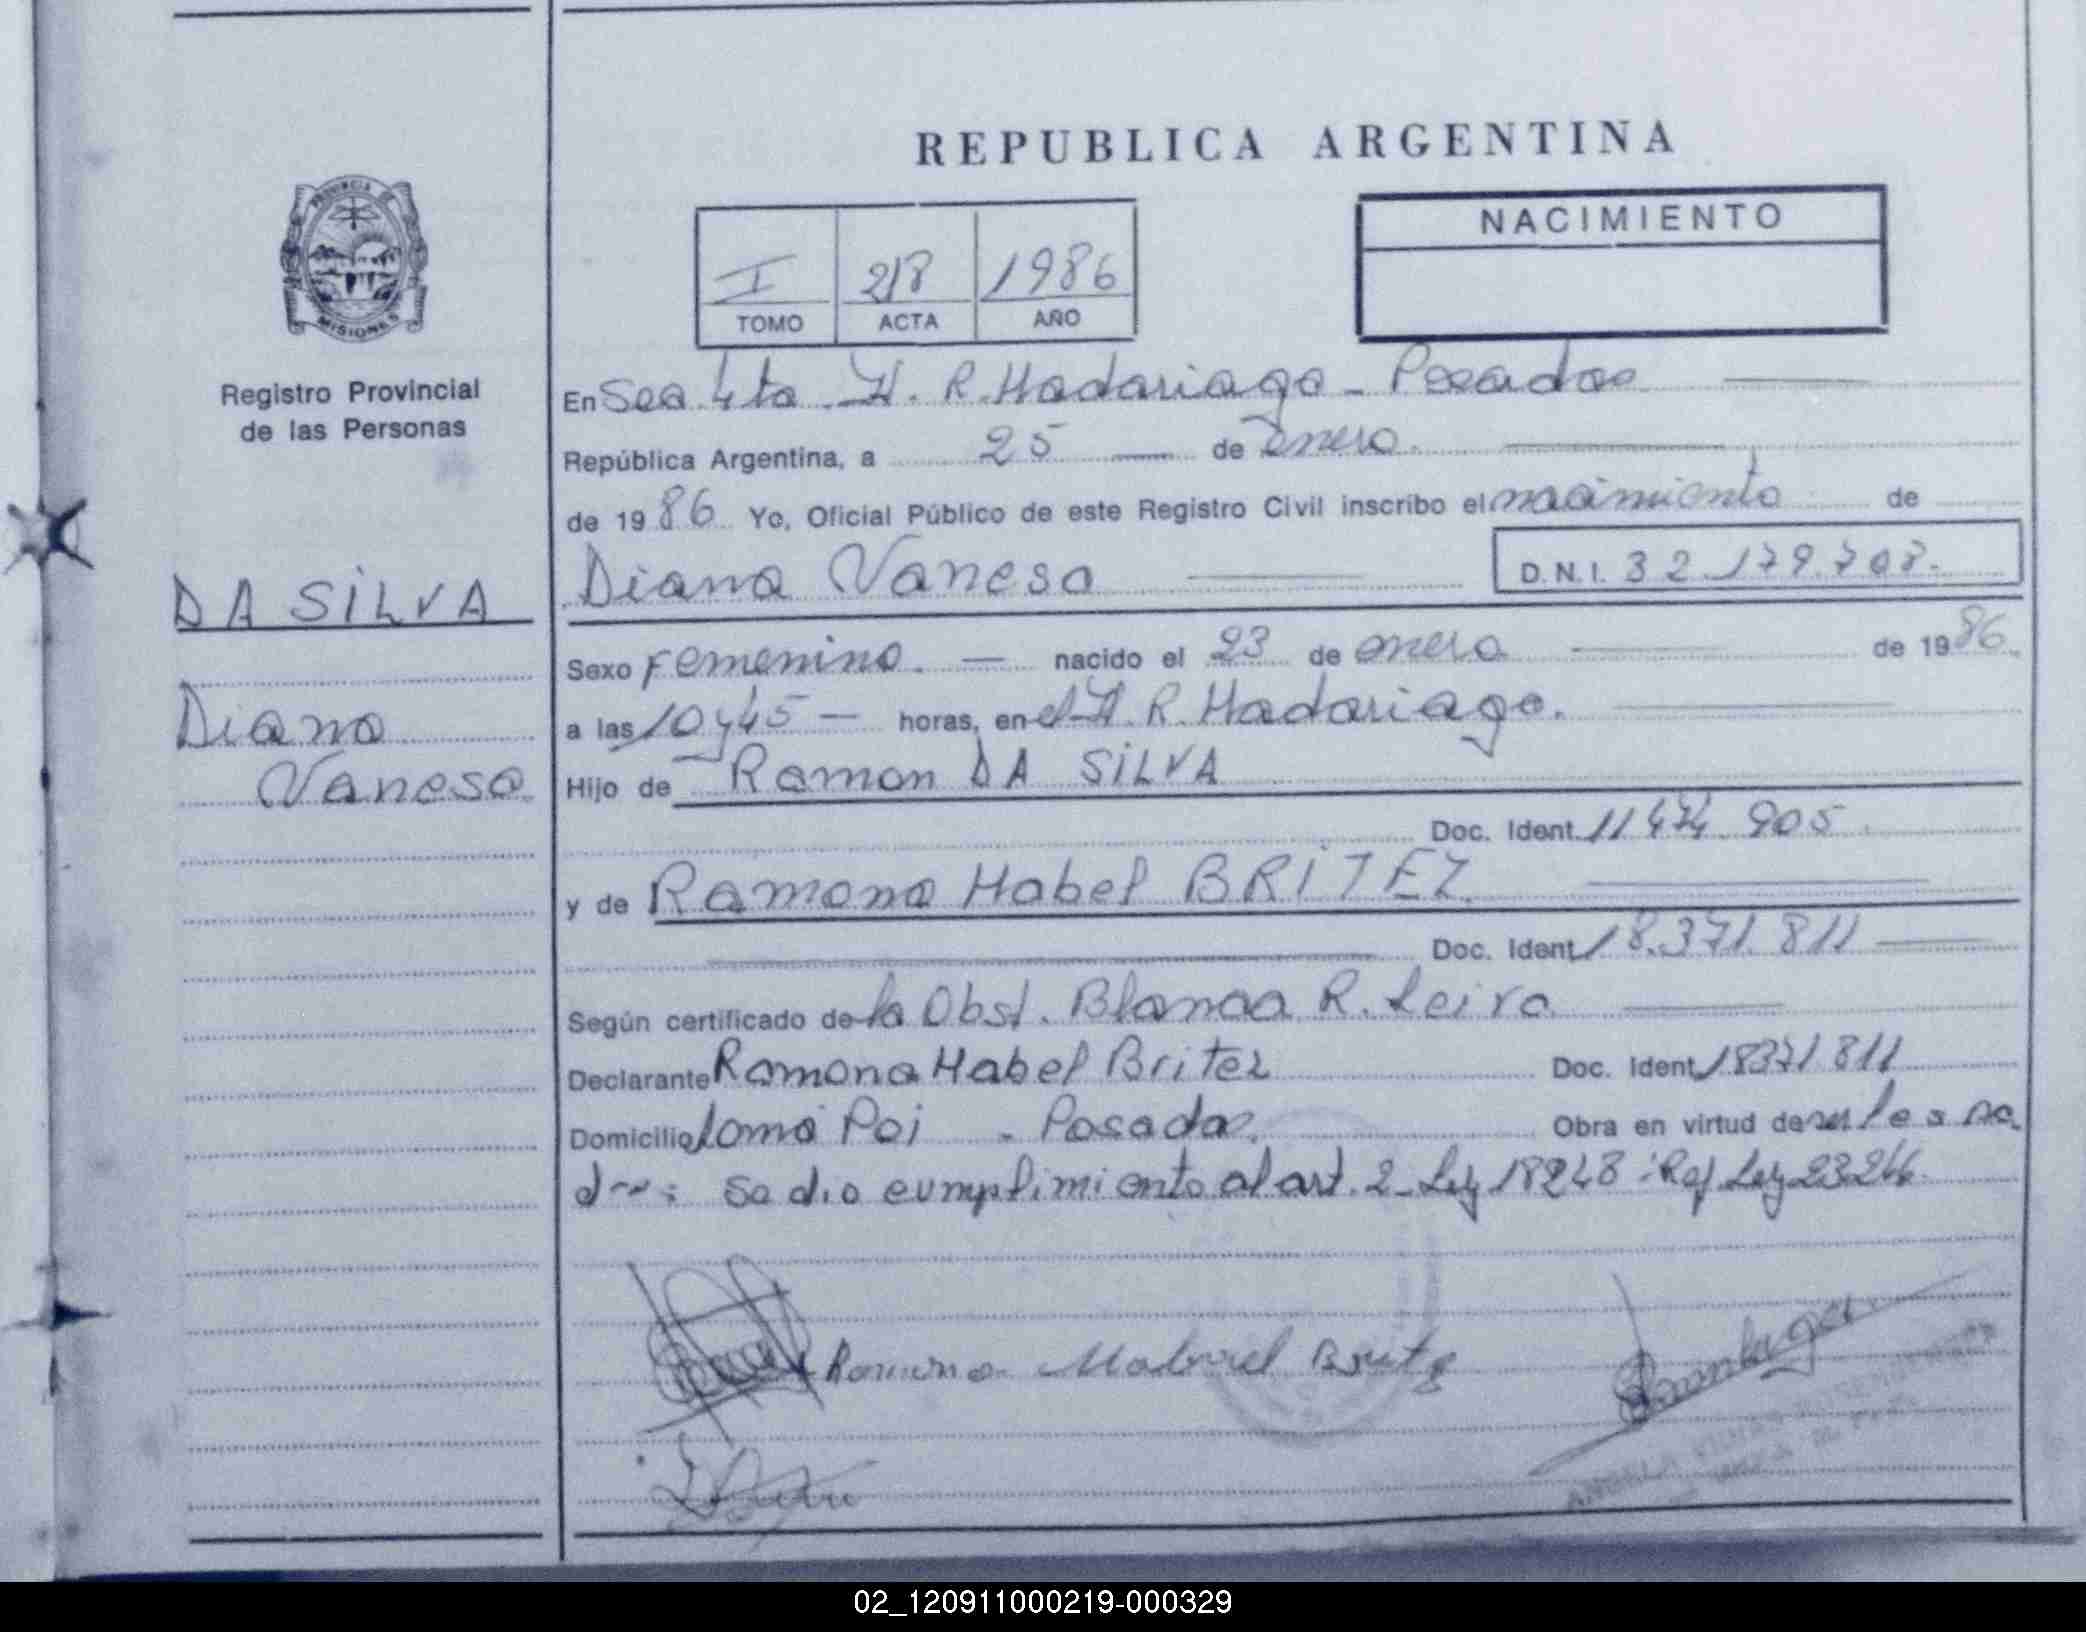 REPUBLICA ARGENTINA
PROVINCIA DE
MISIONES
Registro Provincial
de las Personas
NACIMIENTO
I 218 1986
TOMO ACTA AÑO
En Sec 4ta H. R. Madariaga - Posadas
República Argentina, a 25 de Enero
de 19 86 Yo, Oficial Público de este Registro Civil inscribo el nacimiento de
DA SILVA
Diana Vanesa
Diana Vanesa
D.N.I. 32.179.708.-
Sexo Femenino. — nacido el 23 de enero de 1986.
a las 10 y 45 — horas, en el H. R. Madariaga.
Hijo de Ramon DA SILVA
Doc. Ident. 11474.905
y de Ramona Mabel BRITEZ.
Doc. Ident. 18.371.811
Según certificado de la Obst. Blanca R. Leiva
Declarante Ramona Mabel Britez Doc. Ident. 18371811
Domicilio Loma Poi - Posadas. Obra en virtud de
Se dio cumplimiento al art. 2 - Ley 18248 Ref Ley 23264
Ramona Mabel Britez
ANGELA
02_120911000219-000329